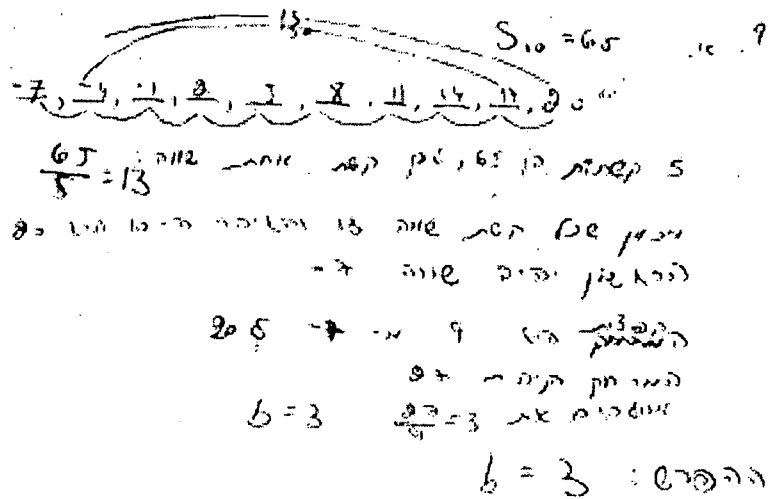 9. א. S₁₀ = 65
13
-7, -4, -1, 2, 5, 8, 11, 14, 17, 20
5 קשתות הן 65, לכן קשת אחת שווה: 65/5 = 13
מכיוון שכל קשת שווה 13 והאיבר ה-10 הוא 20
הראשון יהיה שווה -7
9 מ- -7 20
המרחק 27
את 27/9 = 3 b = 3
ההפרש: b = 3